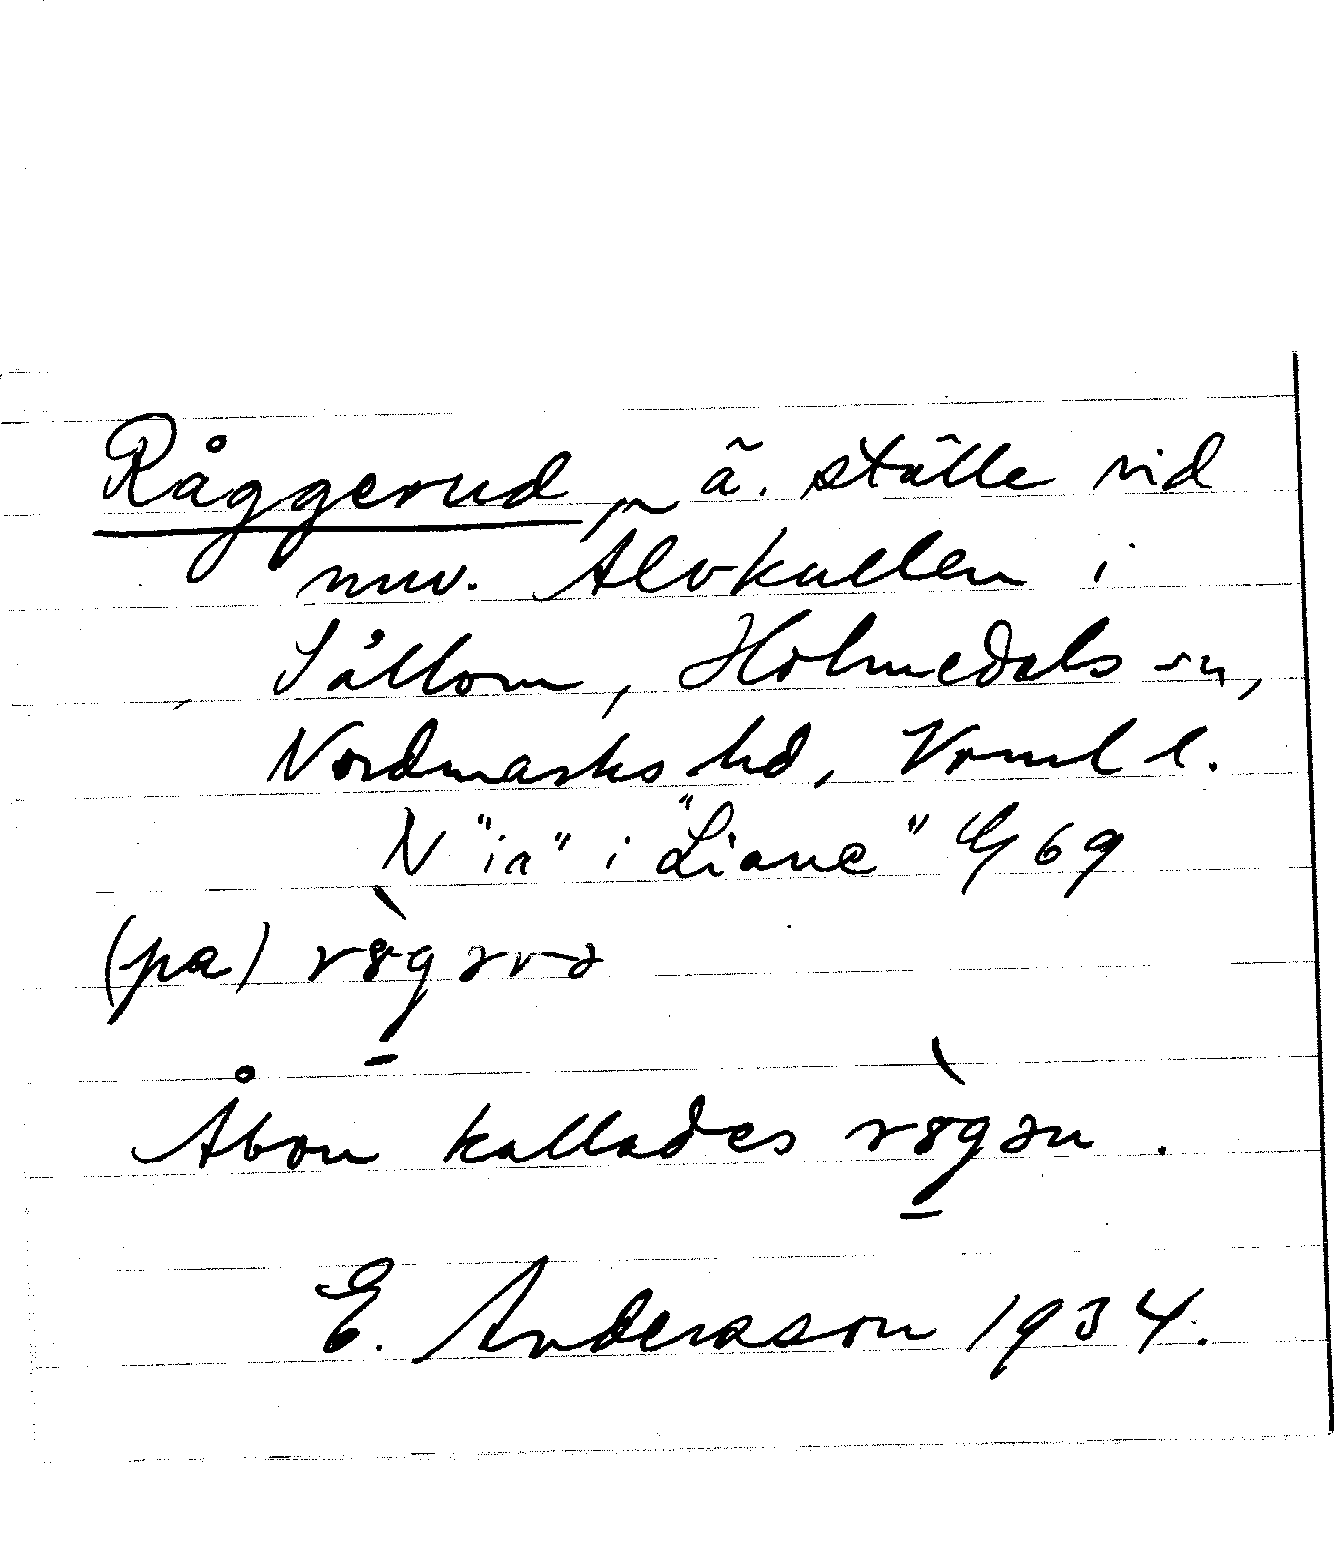 Råggerud, ä. ställe vid
nuv. Älvkullen i
Sållom, Holmedals sn,
Nordmarks hd, Vrml l.
N "ia" i "Liane" 69
(pa)
Åbon kallades
E. Andersson 1934.